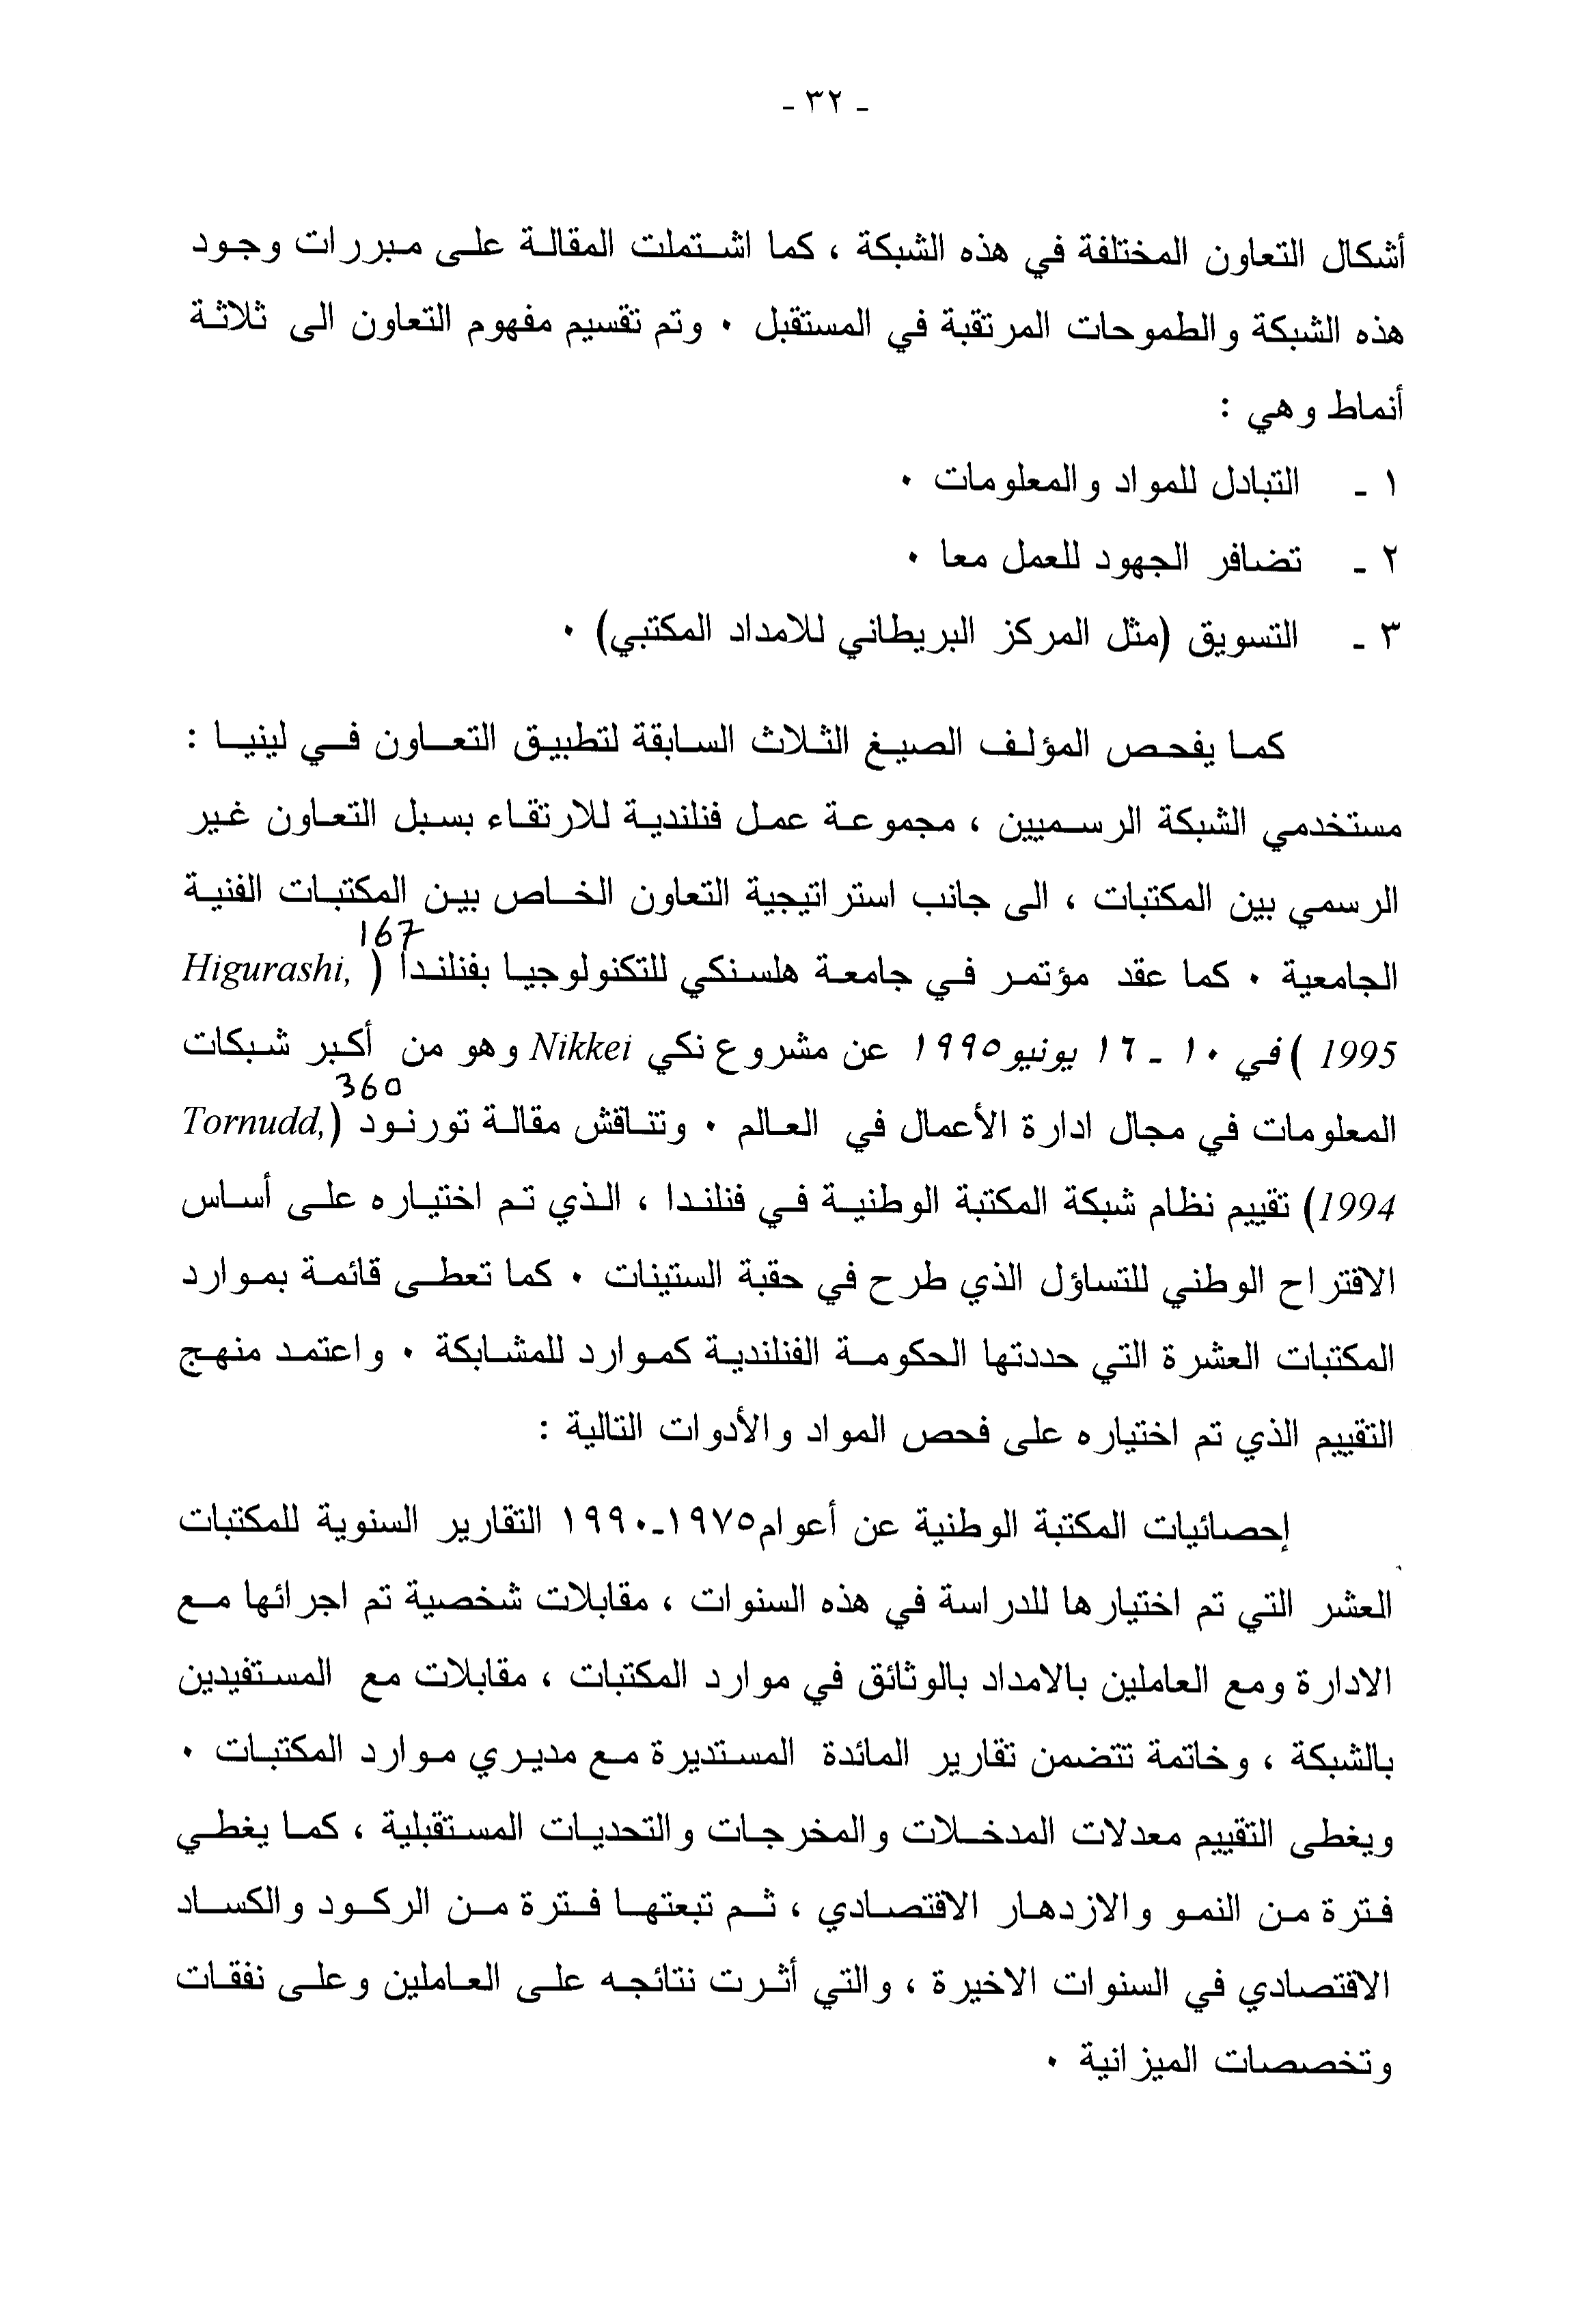 - ٣٢ -
أشكال التعاون المختلفة في هذه الشبكة ، كما اشتملت المقالة على مبررات وجود
هذه الشبكة والطموحات المرتقبة في المستقبل ٠ وتم تقسيم مفهوم التعاون الى ثلاثة
أنماط وهي :
١ - التبادل للمواد والمعلومات ٠
٢ - تضافر الجهود للعمل معا ٠
٣ - التسويق (مثل المركز البريطاني للامداد المكتبي) ٠
كما يفحص المؤلف الصيغ الثلاث السابقة لتطبيق التعاون في لينيا :
مستخدمي الشبكة الرسميين ، مجموعة عمل فنلندية للارتقاء بسبل التعاون غير
الرسمي بين المكتبات ، الى جانب استراتيجية التعاون الخاص بين المكتبات الفنية
167
الجامعية ٠ كما عقد مؤتمر في جامعة هلسنكي للتكنولوجيا بفنلندا ( Higurashi,
1995 ) في ١٠ - ١٦ يونيو ١٩٩٥ عن مشروع نكي Nikkei وهو من أكبر شبكات
360
المعلومات في مجال ادارة الأعمال في العالم ٠ وتناقش مقالة تورنود (Tornudd,
1994) تقييم نظام شبكة المكتبة الوطنية في فنلندا ، الذي تم اختياره على أساس
الاقتراح الوطني للتساؤل الذي طرح في حقبة الستينات ٠ كما تعطى قائمة بموارد
المكتبات العشرة التي حددتها الحكومة الفنلندية كموارد للمشابكة ٠ واعتمد منهج
التقييم الذي تم اختياره على فحص المواد والأدوات التالية :
إحصائيات المكتبة الوطنية عن أعوام ١٩٧٥-١٩٩٠ التقارير السنوية للمكتبات
العشر التي تم اختيارها للدراسة في هذه السنوات ، مقابلات شخصية تم اجرائها مع
الادارة ومع العاملين بالامداد بالوثائق في موارد المكتبات ، مقابلات مع المستفيدين
بالشبكة ، وخاتمة تتضمن تقارير المائدة المستديرة مع مديري موارد المكتبات ٠
ويغطى التقييم معدلات المدخلات والمخرجات والتحديات المستقبلية ، كما يغطي
فترة من النمو والازدهار الاقتصادي ، ثم تبعتها فترة من الركود والكساد
الاقتصادي في السنوات الاخيرة ، والتي أثرت نتائجه على العاملين وعلى نفقات
وتخصصات الميزانية ٠